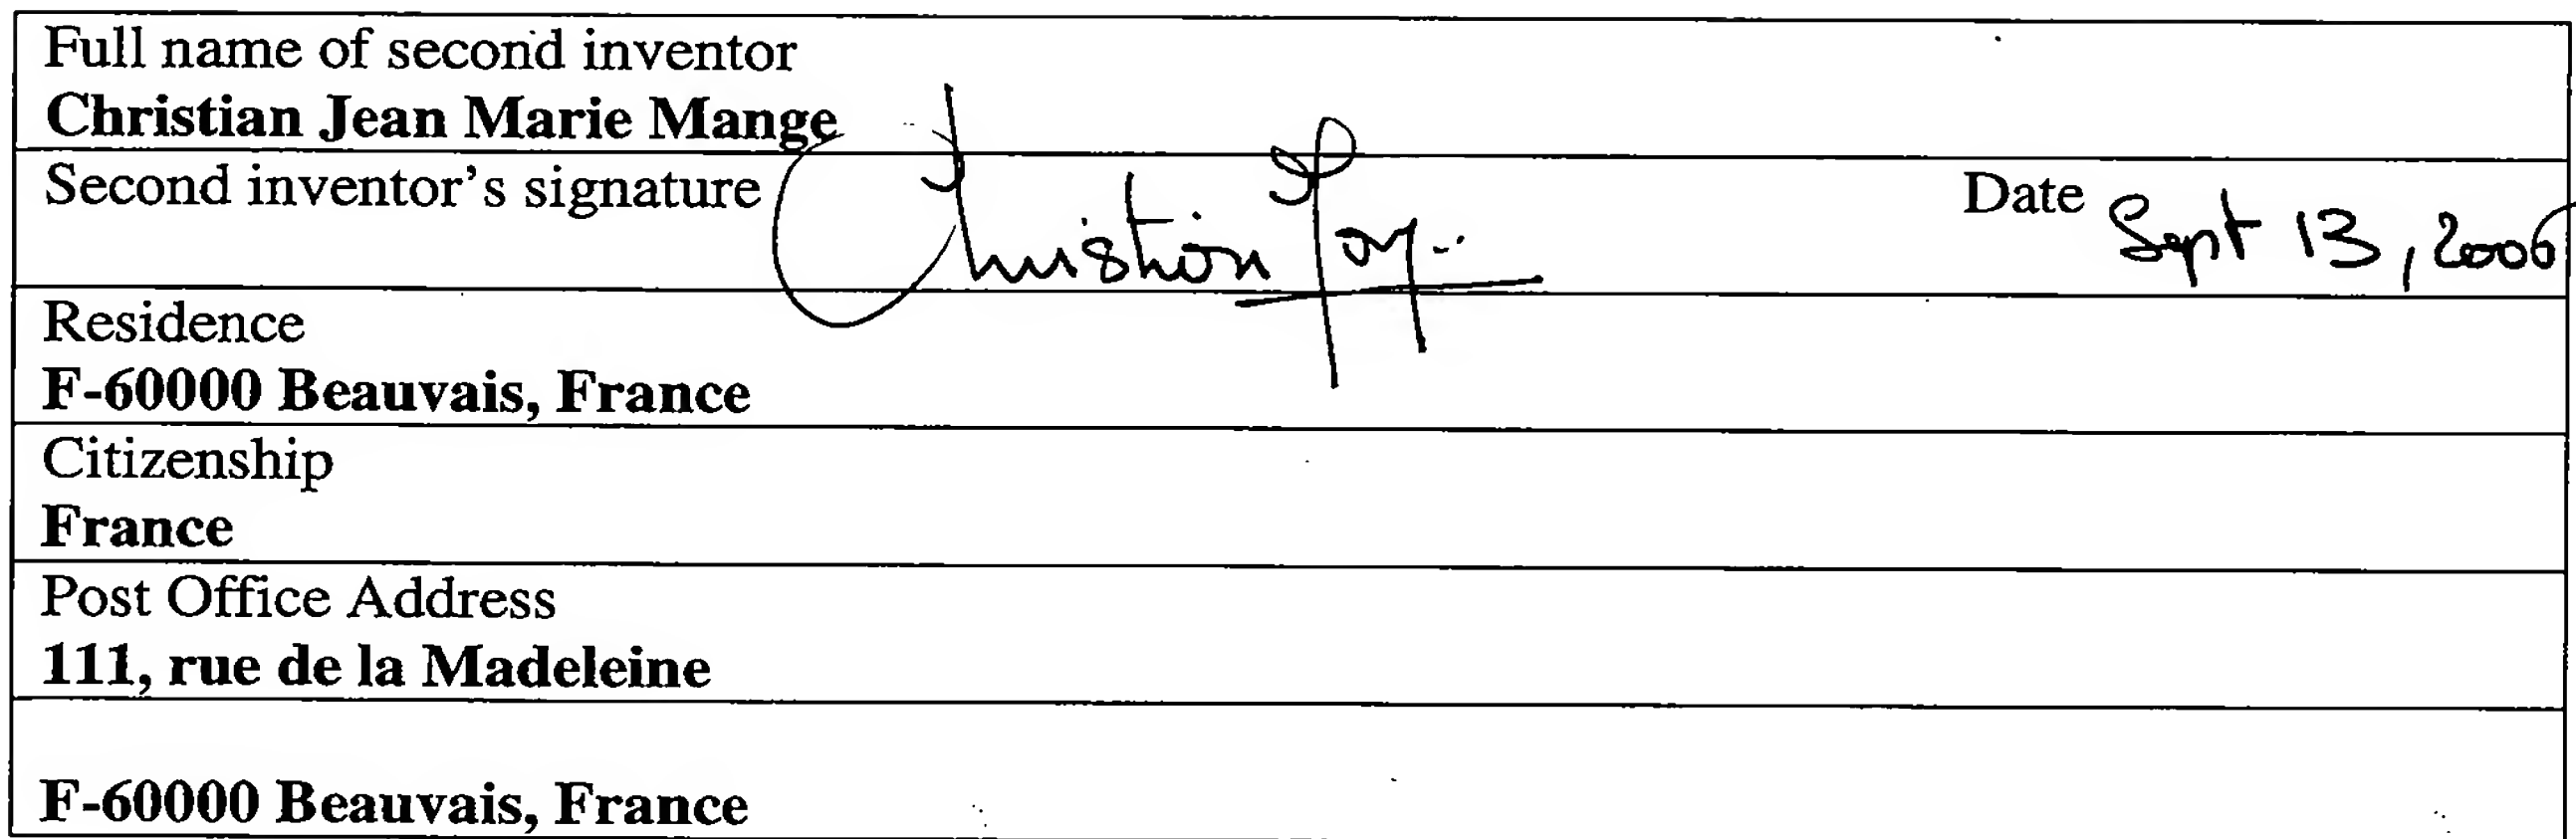 Full name of second inventor
Christian Jean Marie Mange
Second inventor's signature Christian Date Sept 13, 2006
Residence
F-60000 Beauvais, France
Citizenship
France
Post Office Address
111, rue de la Madeleine
F-60000 Beauvais, France